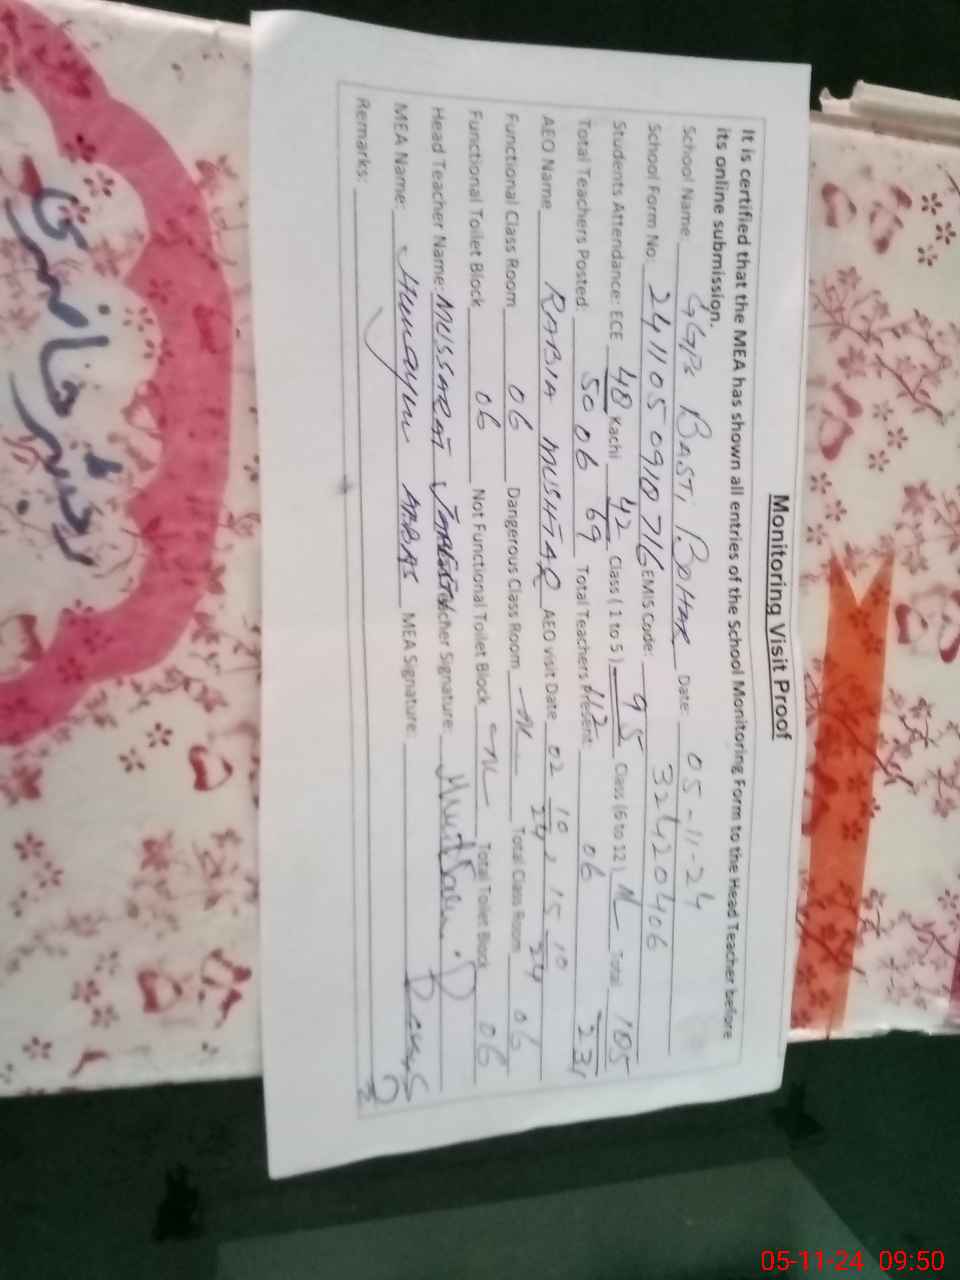 Monitoring Visit Proof
It is certified that the MEA has shown all entries of the School Monitoring Form to the Head Teacher before
its online submission.
School Name: GGPS BASTI BOHAR Date: 05-11-24
School Form No: 24110509 10716 EMIS Code: 32420406
Students Attendance: ECE 48/50 Kachi 42/69 Class (1 to 5) 95/112 Class (6 to 12) NIL Total 185/231
Total Teachers Posted: 06 Total Teachers Present: 06
AEO Name RABIA MUSHTAQ AEO visit Date 02-10-24, 15-10-24
Functional Class Room 06 Dangerous Class Room NIL Total Class Room 06
Functional Toilet Block 06 Not Functional Toilet Block NIL Total Toilet Block 06
Head Teacher Name: MUSSARAT Teacher Signature:
MEA Name: Humayun ABBAS MEA Signature:
Remarks:
رجسٹر حاضری
05-11-24 09:50